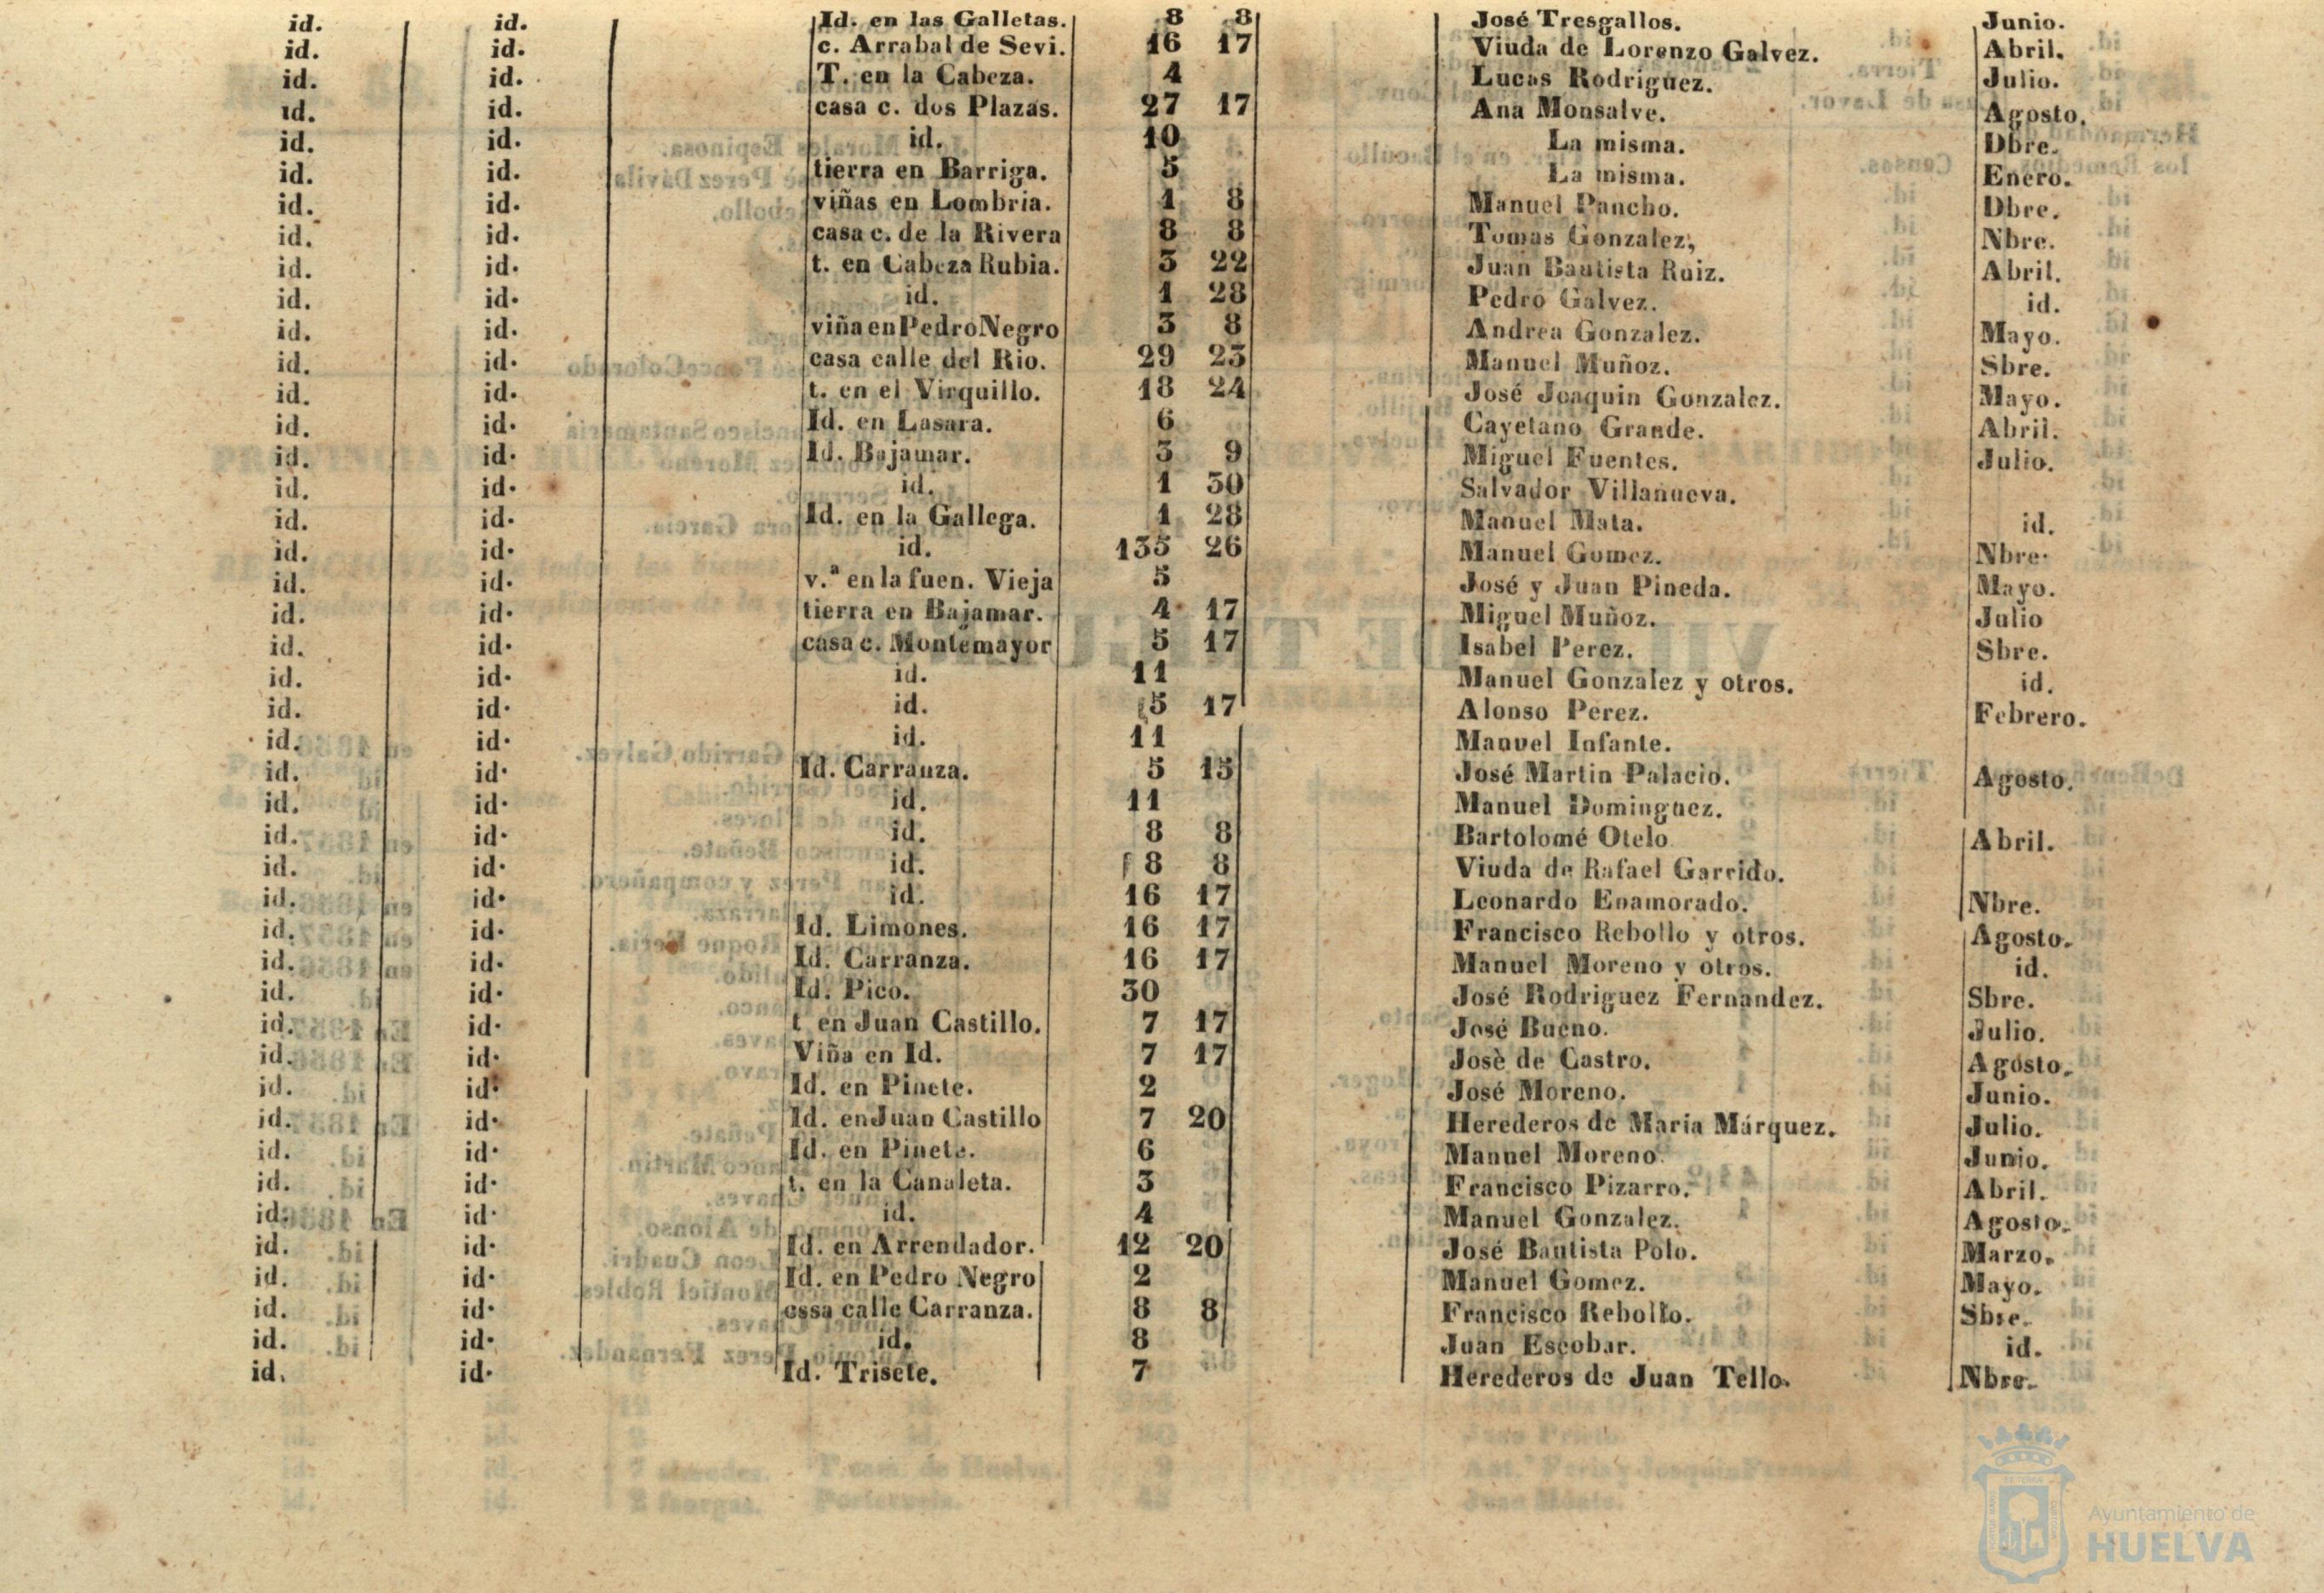 id. id. Id. en las Galletas. 8 8 José Tresgallos. Junio.
id. id. c. Arrabal de Sevi. 16 17 Viuda de Lorenzo Galvez. Abril.
id. id. T. en la Cabeza. 4 Lucas Rodriguez. Julio.
id. id. casa c. dos Plazas. 27 17 Ana Monsalve. Agosto.
id. id. id. 10 La misma. Dbre.
id. id. tierra en Barriga. 5 La misma. Enero.
id. id. viñas en Lombria. 1 8 Manuel Pancho. Dbre.
id. id. casa c. de la Rivera 8 8 Tomas Gonzalez, Nbre.
id. id. t. en Cabeza Rubia. 3 22 Juan Bautista Ruiz. Abril.
id. id. id. 1 28 Pedro Galvez. id.
id. id. viña en Pedro Negro 3 8 Andrea Gonzalez. Mayo.
id. id. casa calle del Rio. 29 23 Manuel Muñoz. Sbre.
id. id. t. en el Virquillo. 18 24 José Joaquin Gonzalez. Mayo.
id. id. Id. en Lasara. 6 Cayetano Grande. Abril.
id. id. Id. Bajamar. 3 9 Miguel Fuentes. Julio.
id. id. id. 1 30 Salvador Villanueva.
id. id. Id. en la Gallega. 1 28 Manuel Mata. id.
id. id. id. 135 26 Manuel Gomez. Nbre.
id. id. v.ª en la fuen. Vieja 5 José y Juan Pineda. Mayo.
id. id. tierra en Bajamar. 4 17 Miguel Muñoz. Julio
id. id. casa c. Montemayor 5 17 Isabel Perez. Sbre.
id. id. id. 11 Manuel Gonzalez y otros. id.
id. id. id. 5 17 Alonso Perez. Febrero.
id. id. id. 11 Manuel Infante.
id. id. Id. Carranza. 5 15 José Martin Palacio. Agosto.
id. id. id. 11 Manuel Dominguez.
id. id. id. 8 8 Bartolomé Otelo Abril.
id. id. id. 8 8 Viuda de Rafael Garrido.
id. id. id. 16 17 Leonardo Enamorado. Nbre.
id. id. Id. Limones. 16 17 Francisco Rebollo y otros. Agosto.
id. id. Id. Carranza. 16 17 Manuel Moreno y otros. id.
id. id. Id. Pico. 30 José Rodriguez Fernandez. Sbre.
id. id. t en Juan Castillo. 7 17 José Bueno. Julio.
id. id. Viña en Id. 7 17 Josè de Castro. Agosto.
id. id. Id. en Pinete. 2 José Moreno. Junio.
id. id. Id. en Juan Castillo 7 20 Herederos de Maria Márquez. Julio.
id. id. Id. en Pinete. 6 Manuel Moreno. Junio.
id. id. t. en la Canaleta. 3 Francisco Pizarro. Abril.
id. id. id. 4 Manuel Gonzalez. Agosto.
id. id. Id. en Arrendador. 12 20 José Bautista Polo. Marzo.
id. id. Id. en Pedro Negro 2 Manuel Gomez. Mayo.
id. id. cssa calle Carranza. 8 8 Francisco Rebollo. Sbre.
id. id. id. 8 Juan Escobar. id.
id. id. Id. Trisete. 7 Herederos de Juan Tello. Nbre.
Ayuntamiento de
HUELVA